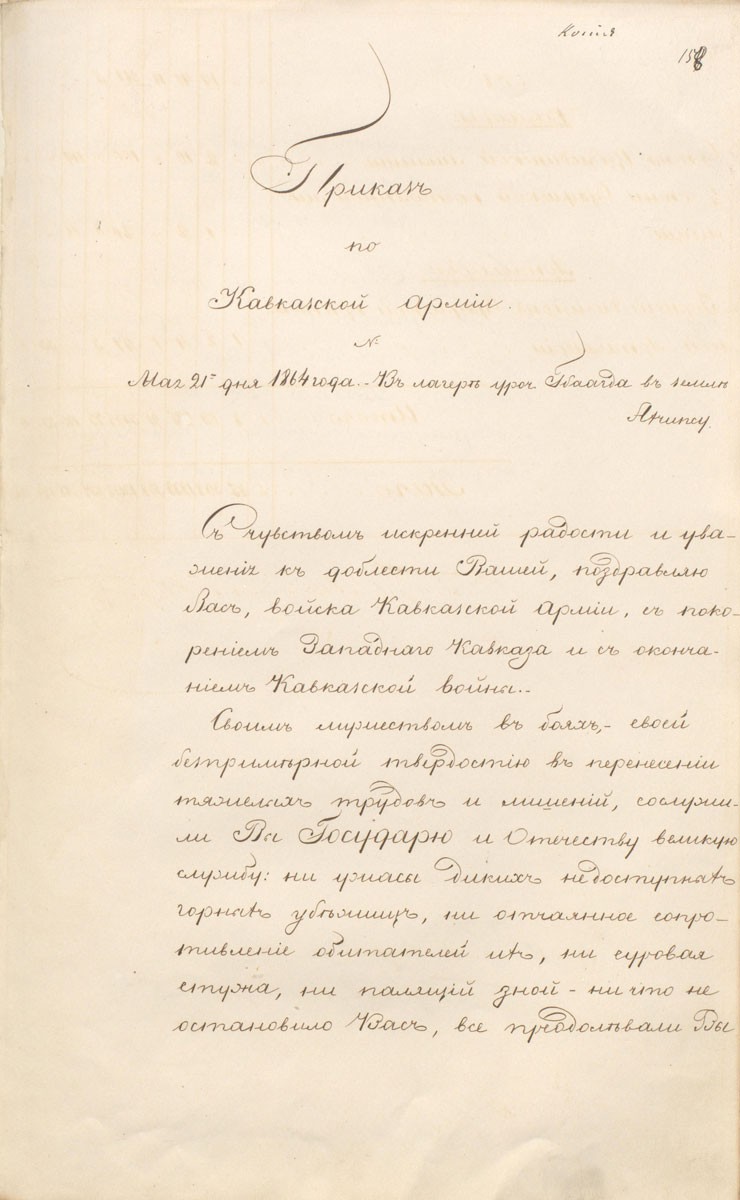 Копія
158
Приказъ
по
Кавказской арміи.
№
Мая 21го дня 1864 года. - Въ лагерѣ уроч. Гбаагда въ землѣ
Ахчипсу.
Съ чувствомъ искренней радости и ува-
женія къ доблести Вашей, поздравляю
Васъ, войска Кавказской арміи, съ поко-
реніемъ Западнаго Кавказа и съ оконча-
ніемъ Кавказской войны.-
Своимъ мужествомъ въ бояхъ, - своей
безпримѣрной твердостію въ перенесеніи
тяжелыхъ трудовъ и лишеній, сослужи-
ли Вы Государю и Отечеству великую
службу: ни ужасы дикихъ недоступныхъ
горныхъ убѣжищъ, ни отчаянное сопро-
тивленіе обитателей ихъ, ни суровая
стужа, ни палящій зной - ничто не
остановило Васъ, все преодолѣвали Вы